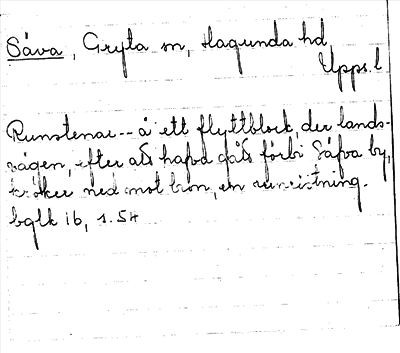 Såva, Gryta sn, Hagunda hd,
Upps. l
Runstenar -- å ett flyttblock, der lands-
vägen, efter att hafva gått förbi Såfva by,
kröker ned mot bron, en runristning.
bglk ib, 1.54